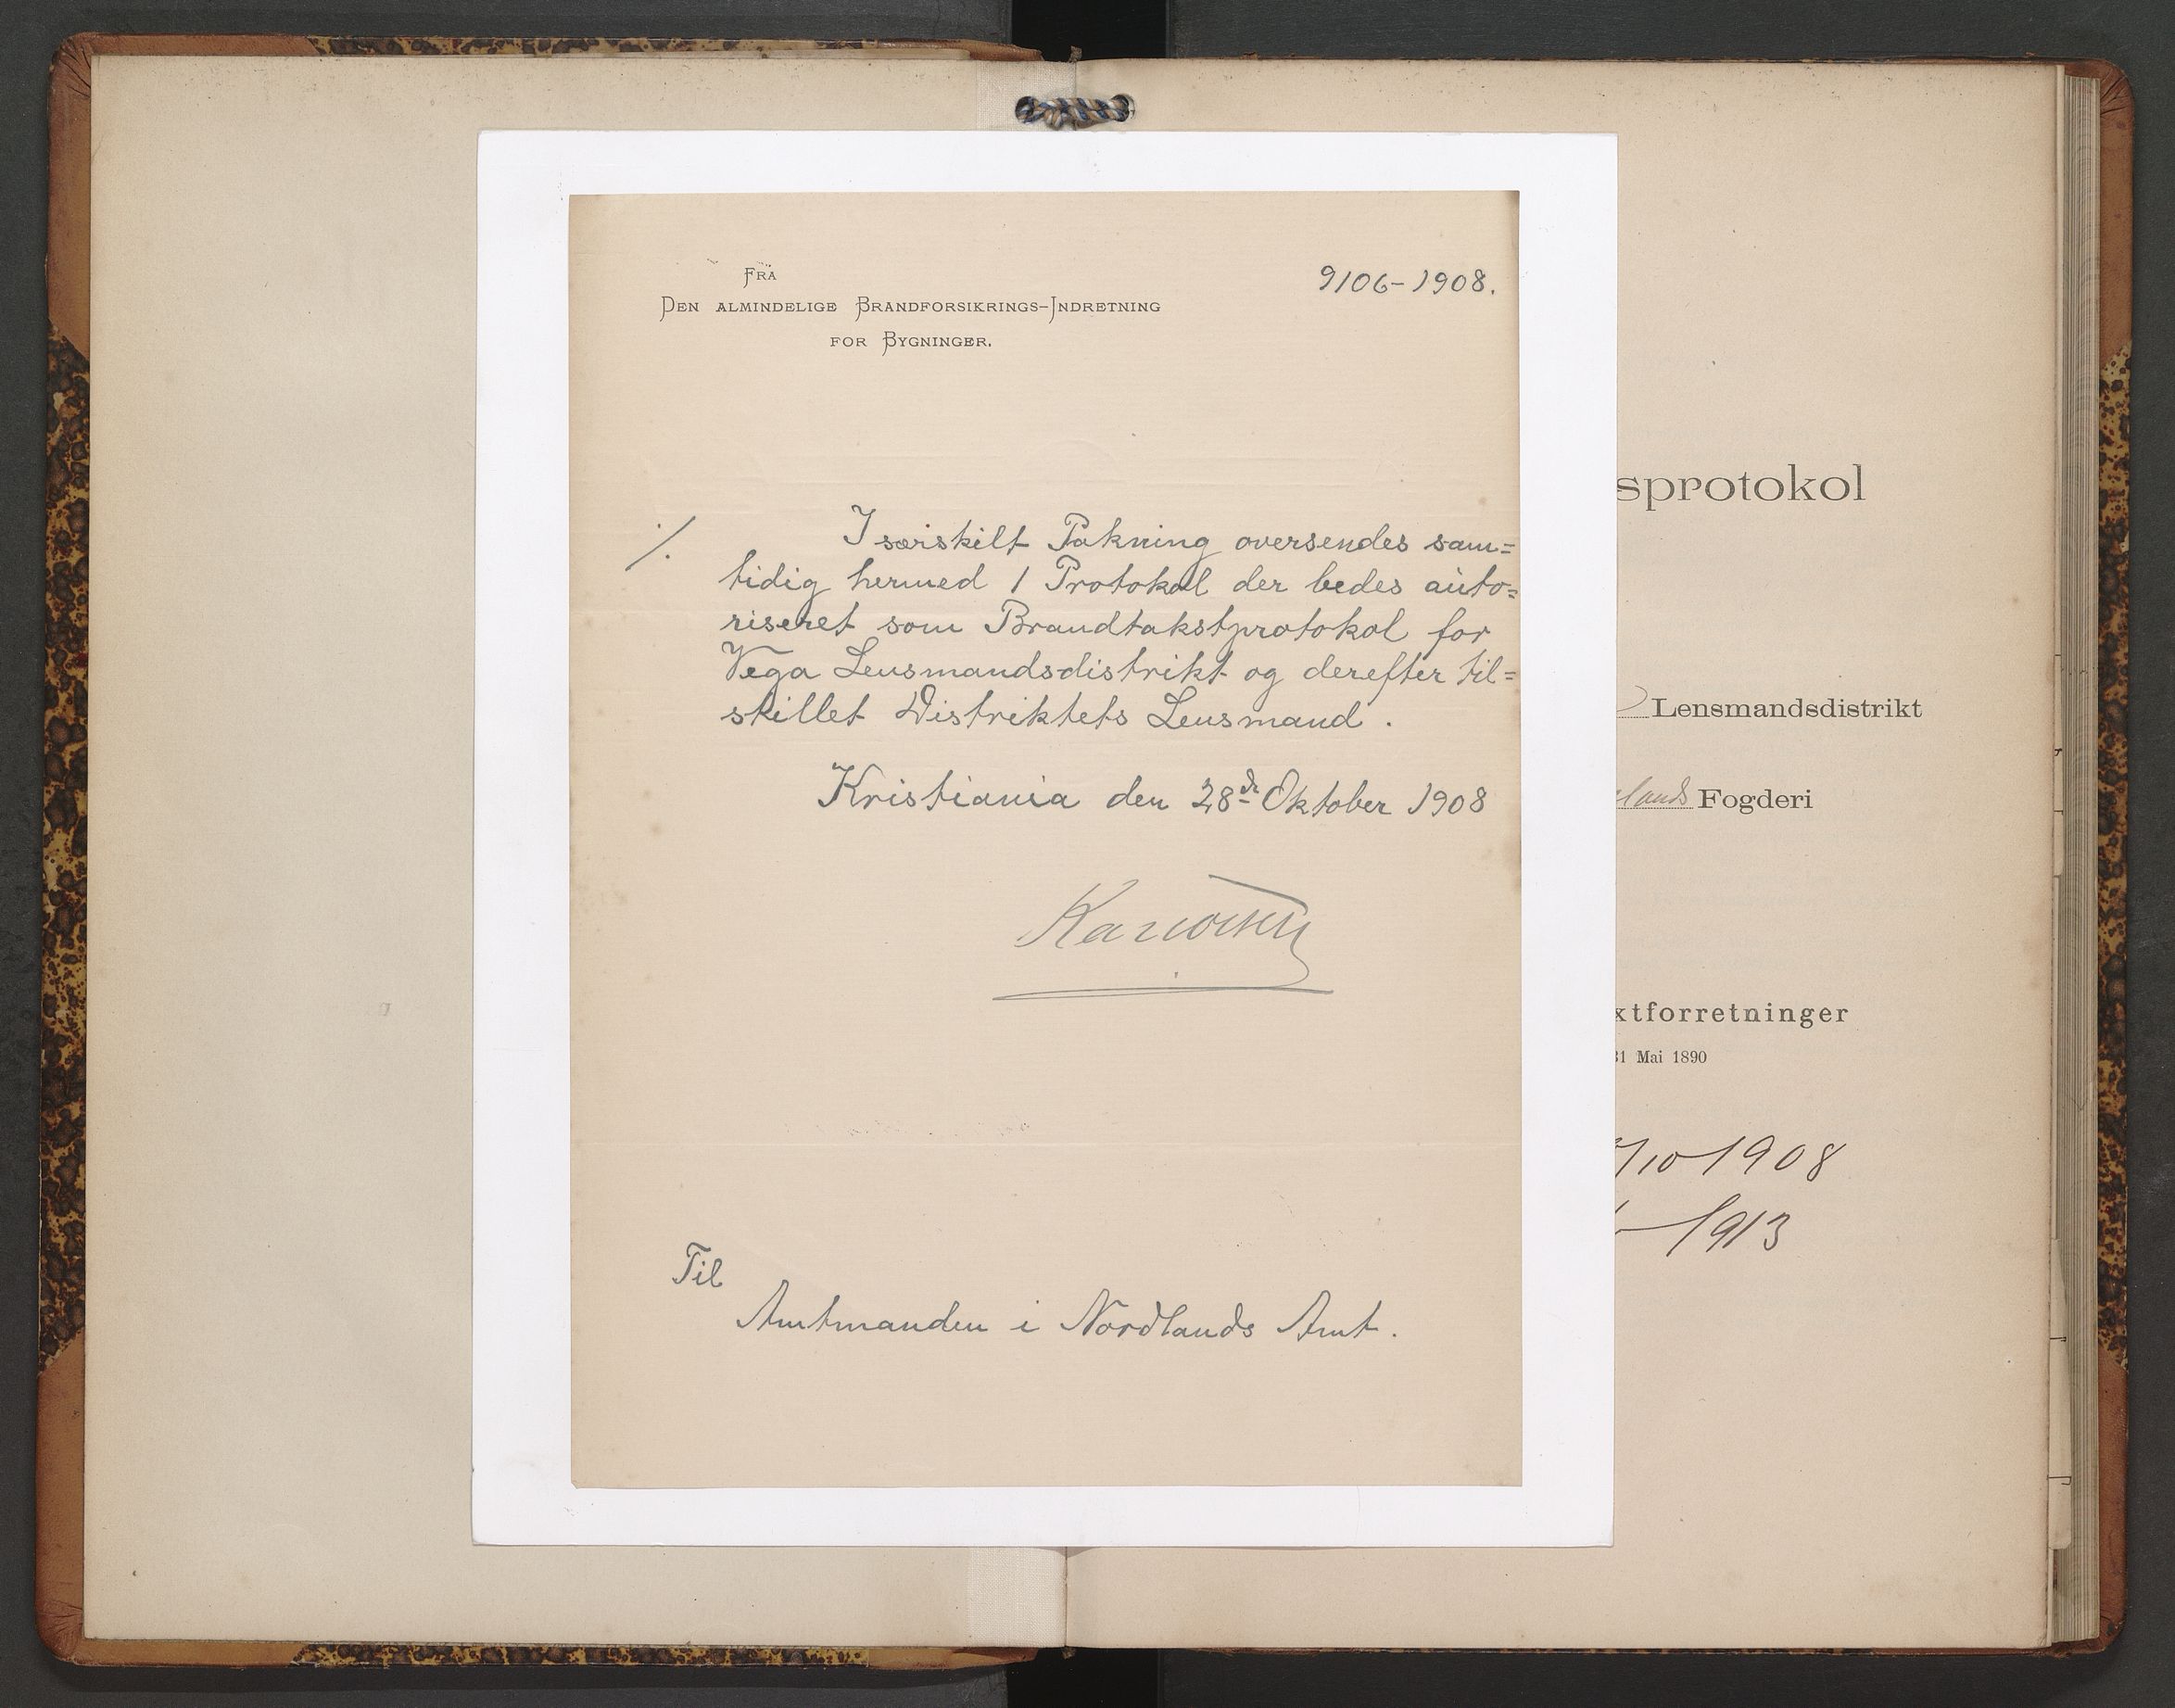 FRA
DEN ALMINDELIGE BRANDFORSIKRINGS-INDRETNING
FOR BYGNINGER.
9106-1908.
./.
I særskilt Pakning oversendes sam=
tidig hermed 1 Protokol der bedes auto=
riseret som Brandtakstprotokol for
Vega Lensmandsdistrikt og derefter til=
stillet Distriktets Lensmand.
Kristiania den 28de Oktober 1908
Til
Amtmanden i Nordlands Amt.
sprotokol
Lensmandsdistrikt
lands Fogderi
xtforretninger
31 Mai 1890
/10 1908
1913